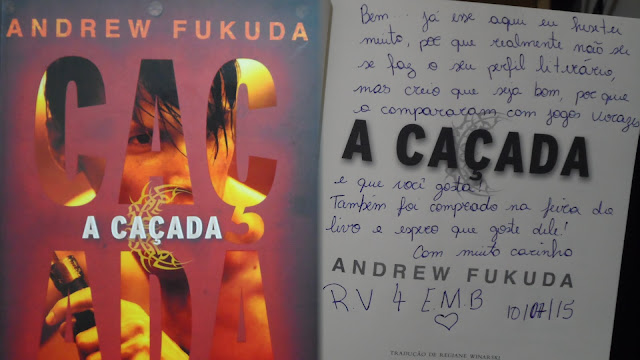 ANDREW FUKUDA
CAÇ
A CAÇADA
ADA
Bem... já esse aqui eu hesitei
muito, por que realmente não sei
se faz o seu perfil literário,
mas creio que seja bom, por que
o compararam com jogos Vorazes
A CAÇADA
e que você gosta!
Também foi comprado na feira do
livro e espero que goste dele!
Com muito carinho
ANDREW FUKUDA
RV 4 E.M.B
10/07/15
TRADUÇÃO DE REGIANE WINARSKI